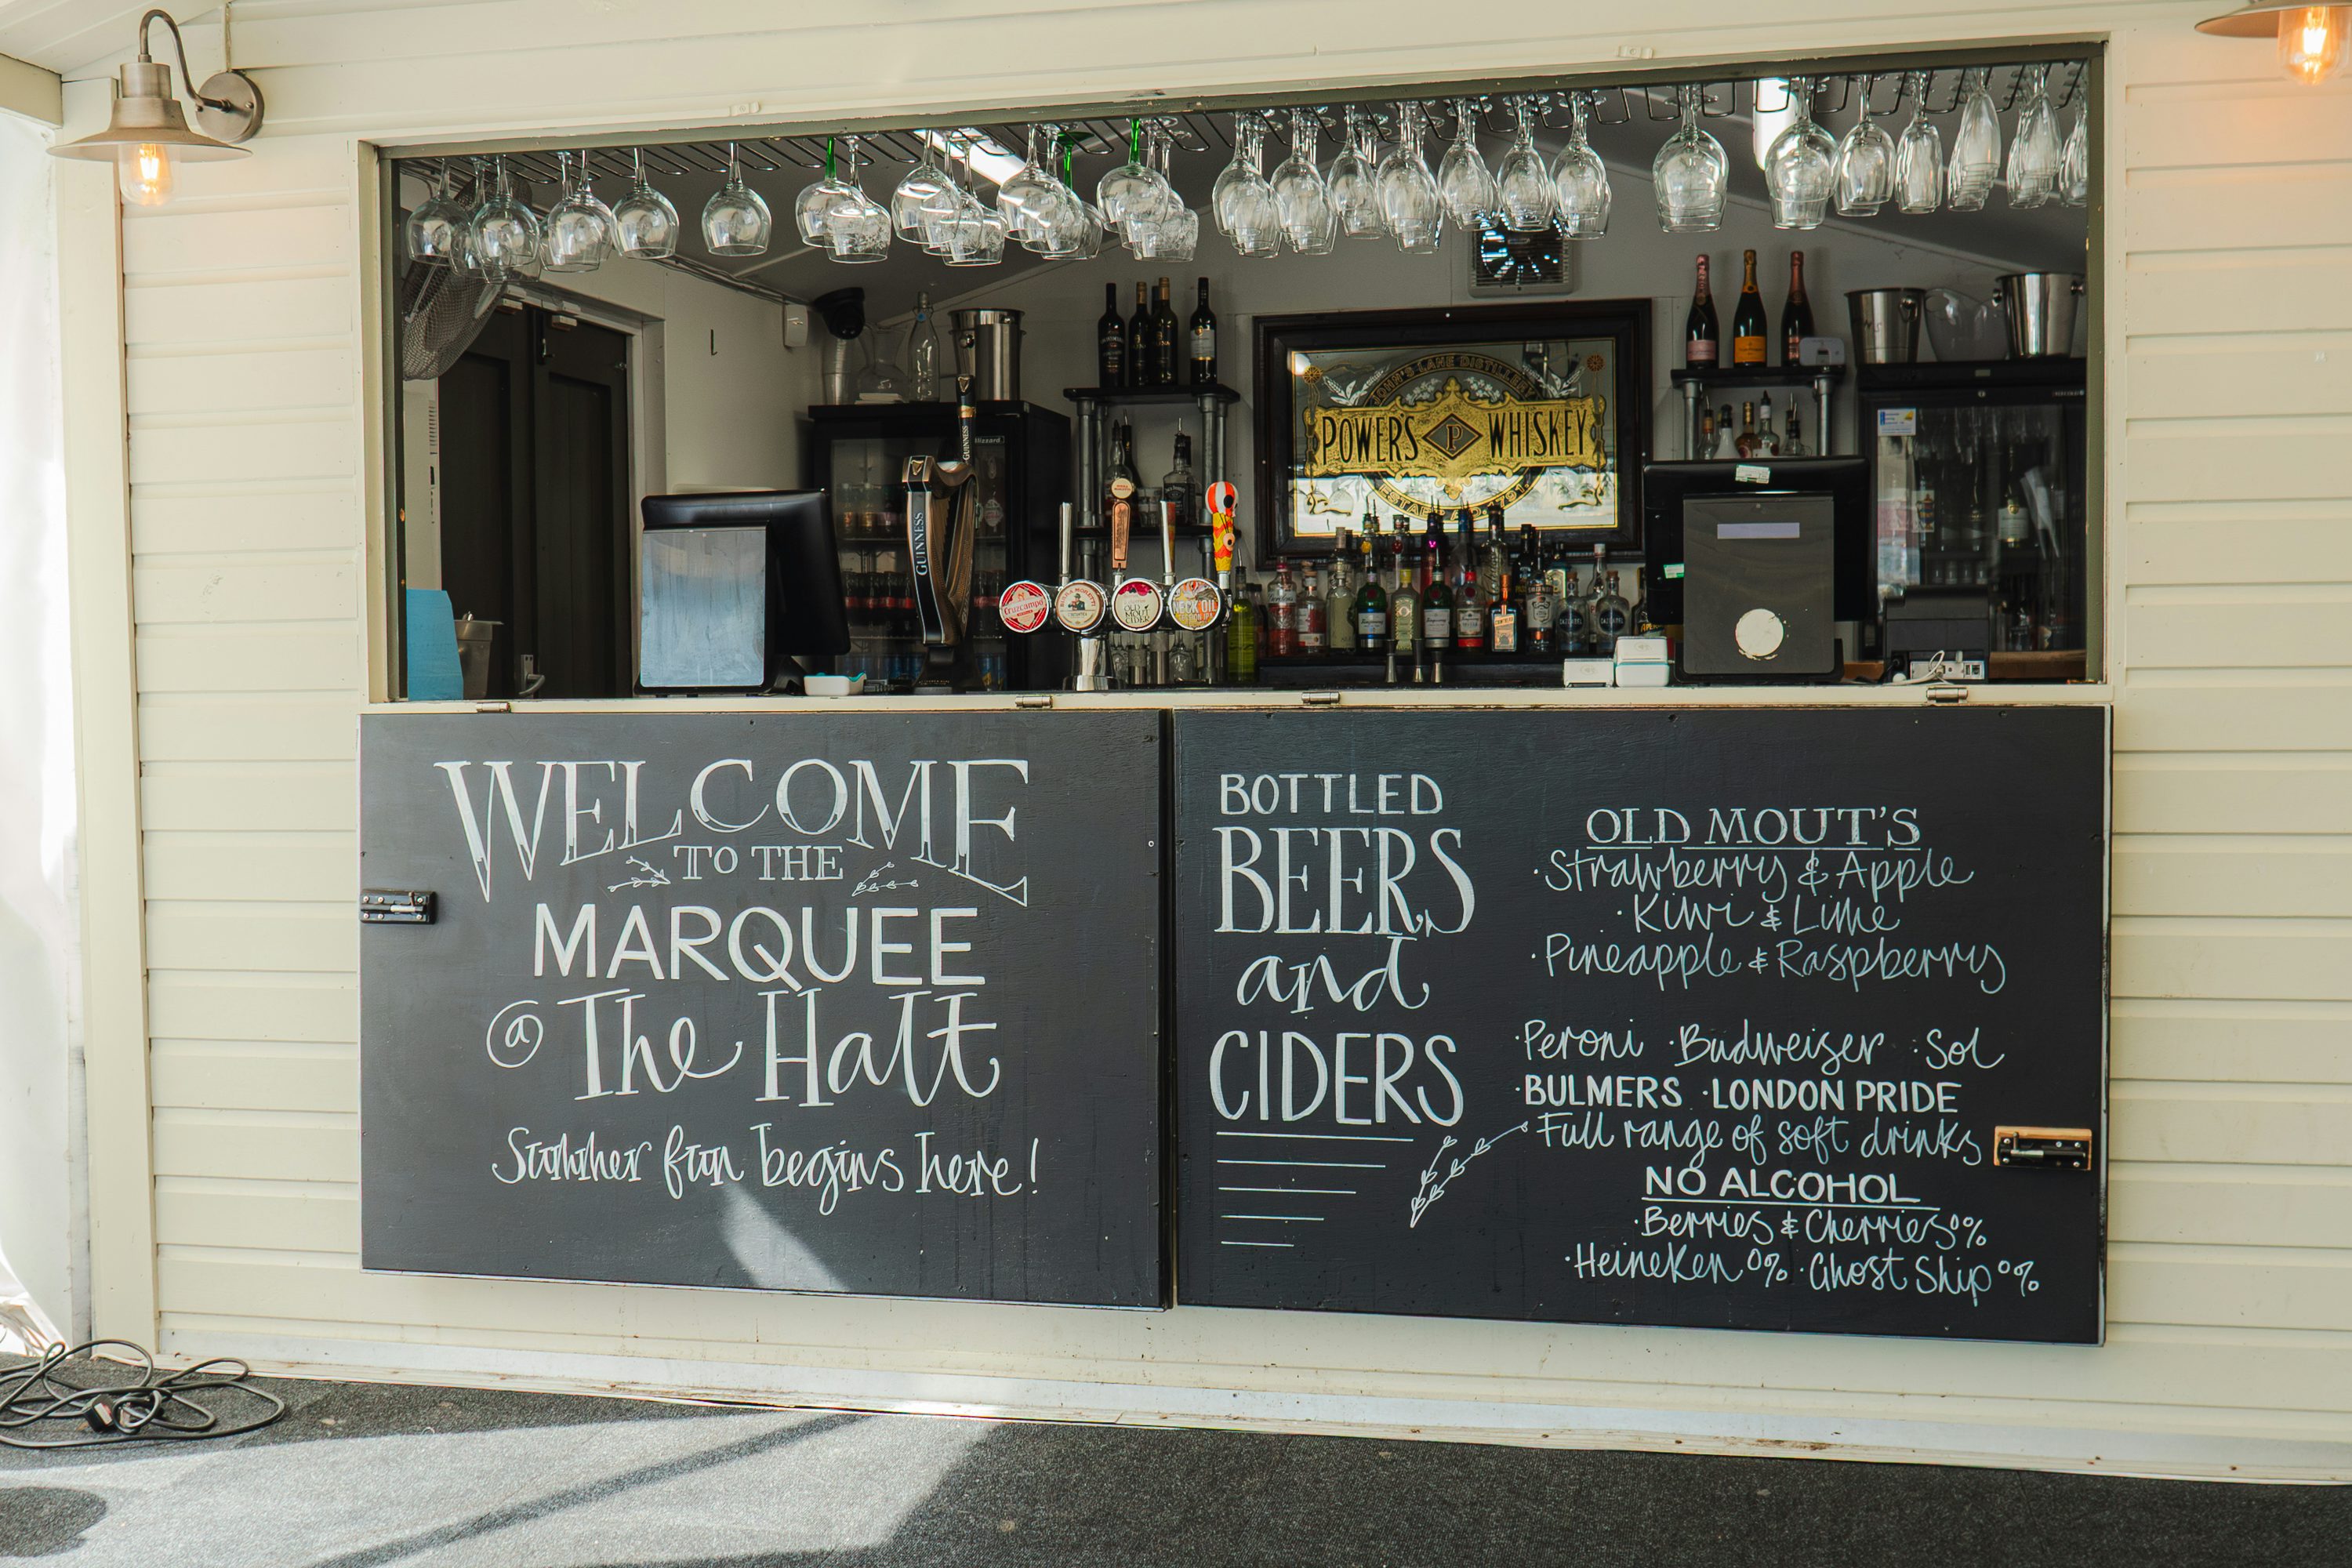 JOHN'S LANE DISTILLERY
POWER'S P WHISKEY
GUINNESS
GUINNESS
Cruzcampo
BIRRA MORETTI
OLD MOUT CIDER
NECK OIL
WELCOME
TO THE
MARQUEE
@ The Halt
Summer fun begins here!
BOTTLED
BEERS
and
CIDERS
OLD MOUT'S
·Strawberry & Apple
·Kiwi & Lime
·Pineapple & Raspberry
·Peroni ·Budweiser ·Sol
·BULMERS ·LONDON PRIDE
·Full range of soft drinks
NO ALCOHOL
·Berries & Cherries 0%
·Heineken 0% ·Ghost Ship 0%